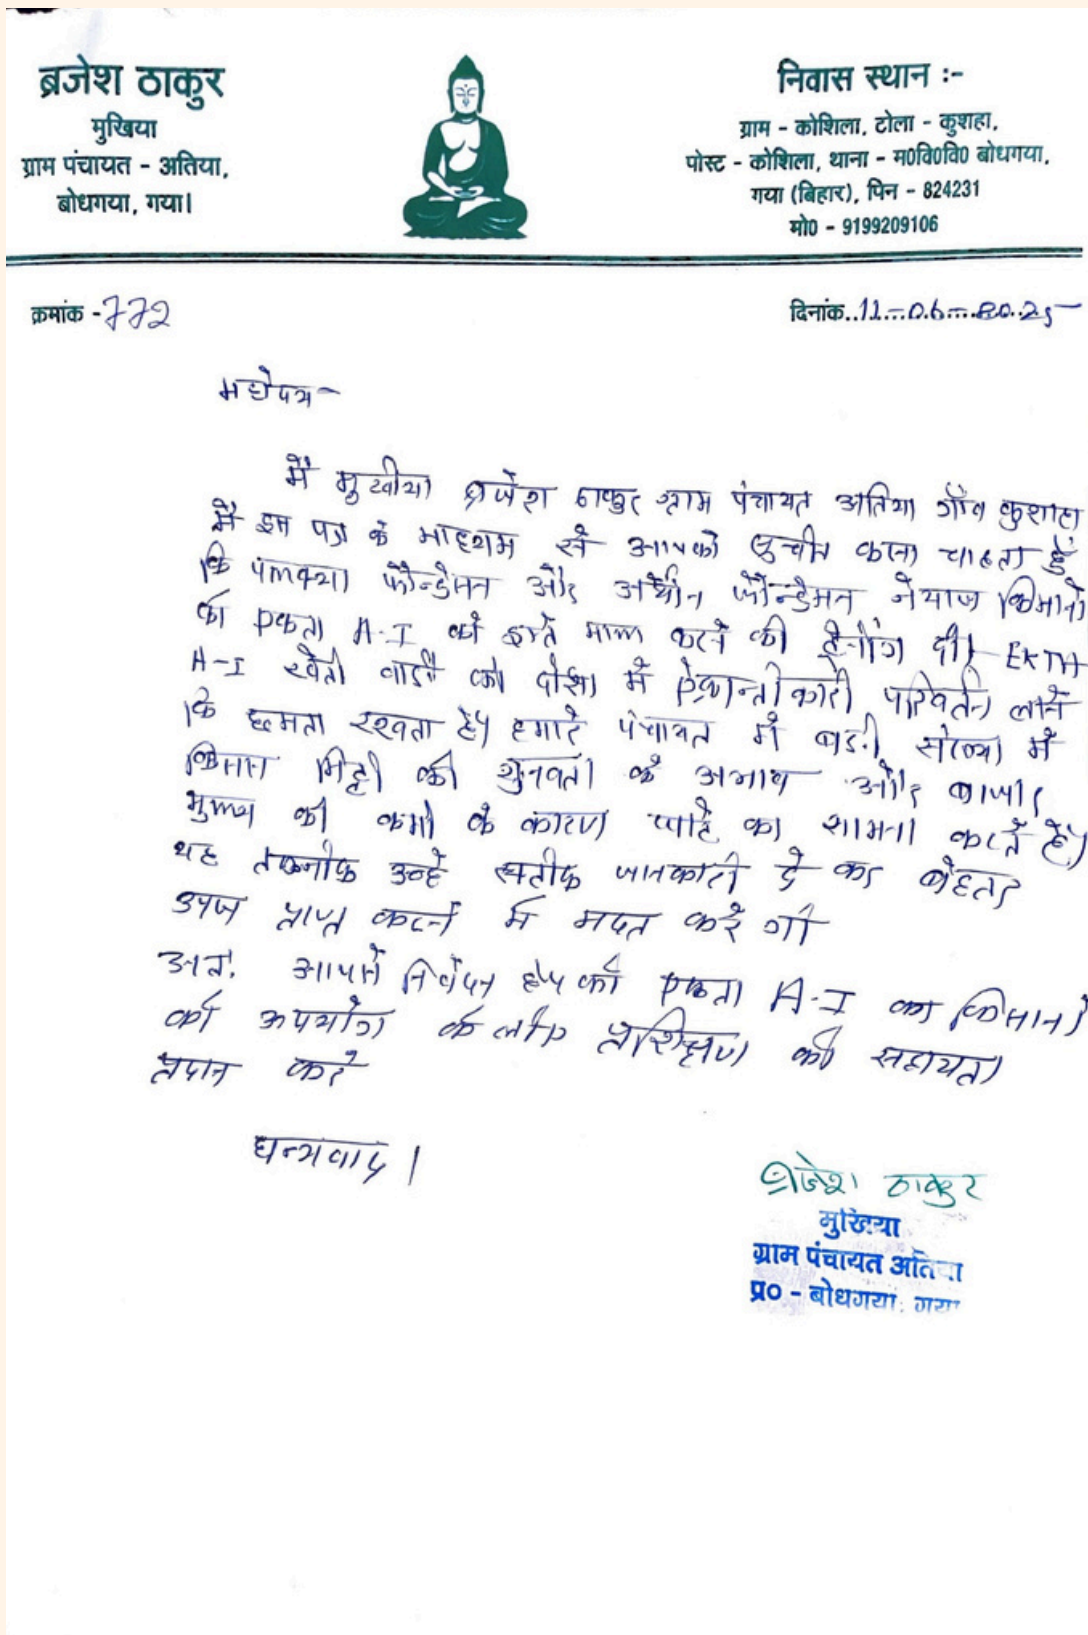 ब्रजेश ठाकुर
मुखिया
ग्राम पंचायत - अतिया,
बोधगया, गया।
निवास स्थान :-
ग्राम - कोशिला, टोला - कुशहा,
पोस्ट - कोशिला, थाना - म0वि0वि0 बोधगया,
गया (बिहार), पिन - 824231
मो0 - 9199209106
क्रमांक - 772
दिनांक..11-06-2025
महोदय-
मैं मुखीया ब्रजेश ठाकुर ग्राम पंचायत अतिया गाँव कुशाहा
मैं इस पत्र के माध्यम से आपको सुचीत करना चाहता हूँ
कि फौन्डेसन और फौन्डेसन ने आज किसानो
को एकता A-I को इस्ते माल करने की ट्रेनींग दी। EKTA
A-I खेती वाडी की दीशा में परिवर्तन लाने
कि छमता रखता है। हमारे पंचायत में बडी संख्या में
किसान मिट्टी की गुनवता के अभाव और बाजार
मुल्य की कमी के कारण घाटे का सामना करते है।
यह तकनीक उन्हे सटीक जानकारी दे कर बेहतर
उपज प्राप्त करने में मदत करे गी
अत: आपसे निवेदन है की एकता A-I का किसानो
को उपयोग के लीए प्रशिक्षण की सहायता
प्रदान करे
धन्यवाद।
ब्रजेश ठाकुर
मुखिया
ग्राम पंचायत अतिया
प्र० - बोधगया, गया